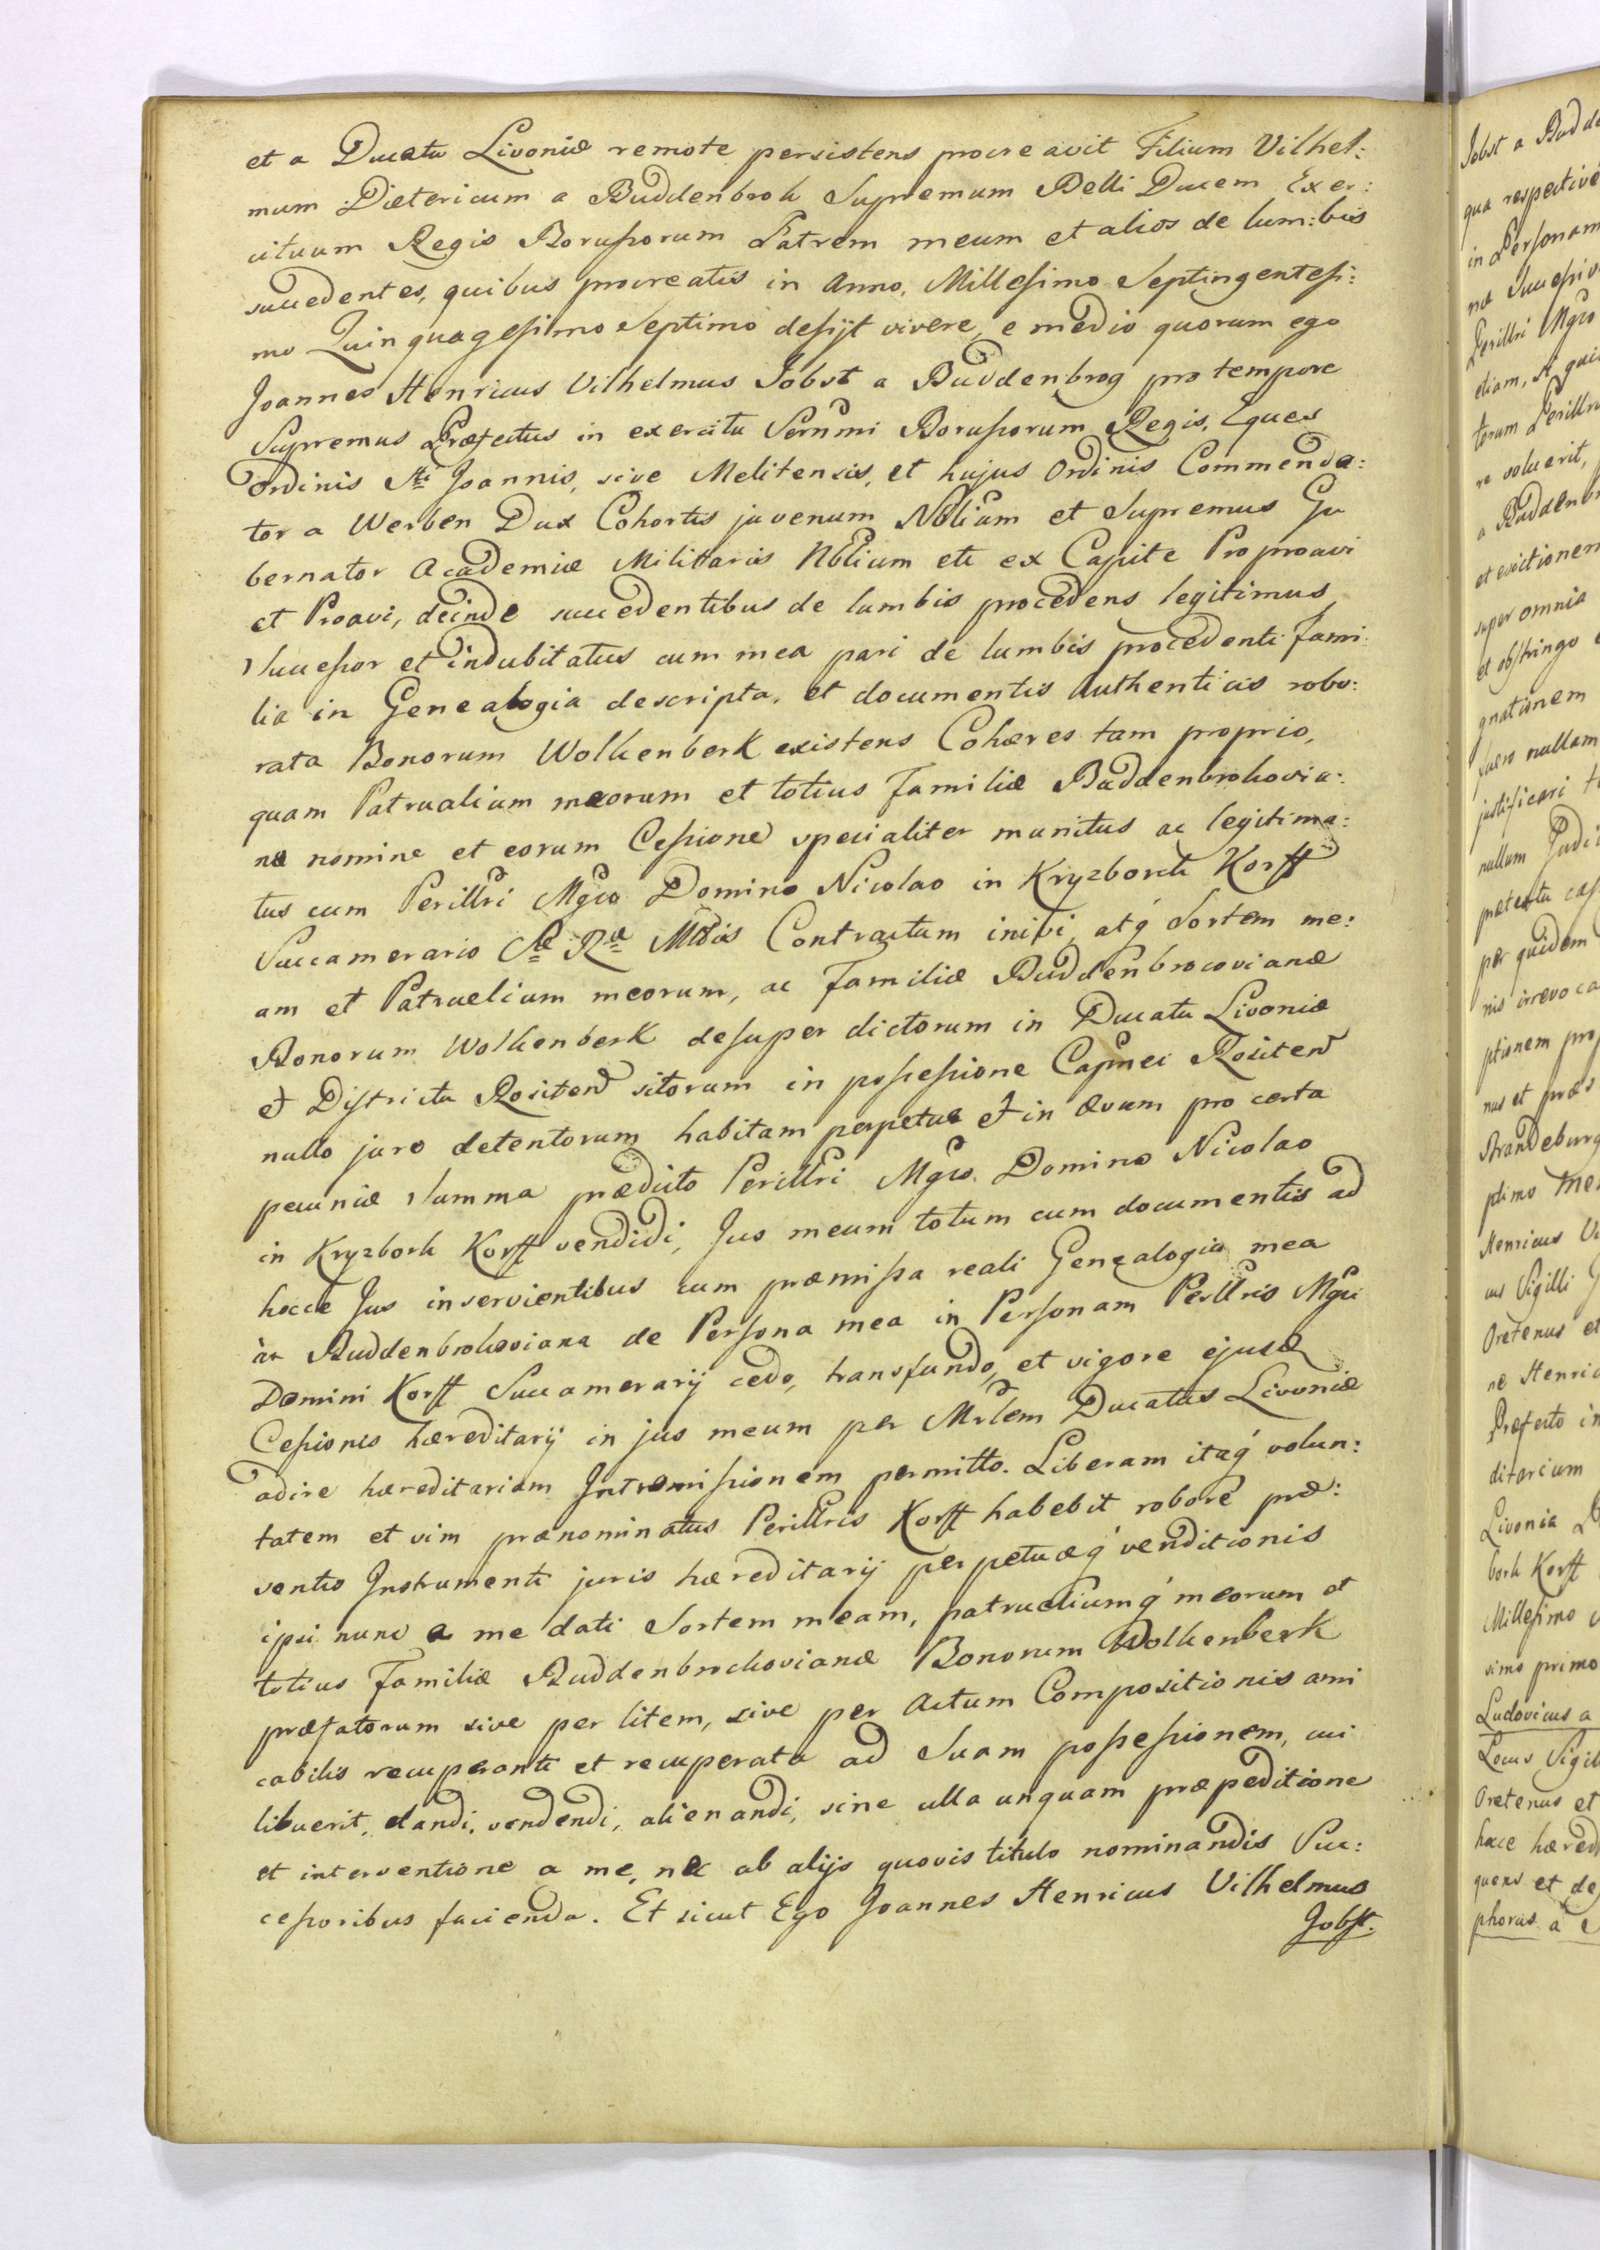 et a Ducatu Livoniæ remote persistens procreavit Filium Vilhel:
mum Dietericum a Buddenbrok Supremum Belli Ducem Exer:
cituum Regis Borussorum Patrem meum et alios de lum:bis
succedentes, quibus procreatis in Anno, Millesimo Septingentesi:
mo Quinquagesimo Septimo desijt vivere, e medio quorum ego
Joannes Henricus Vilhelmus Jobst a Buddenbrog pro tempore
Supremus Præfectus in exercitu Serñmi Borussorum Regis, Eques
Ordinis Sti Joannis, sive Melitensis, et hujus Ordinis Commenda:
tor a Werben Dux Cohortis juvenum Noblium et Supremus Gu
bernator Academiæ Militaris Nblium etc ex Capite Proproavi
et Proavi, deinde succedentibus de lumbis procedens legitimus
Successor et indubitatus cum mea pari de lumbis procedenti Fami
lia in Genealogia descripta, et documentis authenticis robo:
rata Bonorum Wolkenberk existens Cohæres tam proprio,
quam Patrualium meorum et totius Familiæ Buddenbrokovia:
næ nomine et eorum Cessione specialiter munitus ac legitima:
tus cum Perillri Mgco Domino Nicolao in Kryzbork Korff
Succamerario Sæ Ræ Mttis Contractum inivi, atq́ Sortem me:
am et Patruelium meorum, ac Familiæ Buddenbrocovianæ
Bonorum Wolkenberk desuper dictorum in Ducatu Livoniæ
et Districtu Rositen sitorum in possessione Capnei Rositen
nullo jure detentorum habitam perpetuæ et in ævum pro certa
pecuniæ Summa prædicto Perillri Mgco. Domino Nicolao
in Kryzbork Korff vendidi, Jus meum totum cum documentis ad
hocce Jus inservientibus cum præmissa reali Genealogia mea
ac Buddenbrokoviana de Persona mea in Personam Perllris Mgci
Domini Korff Succamerarij cedo, transfundo, et vigore ejusd
Cessionis hæreditarij in jus meum per Mrlem Ducatus Livoniæ
adire hæreditariam Intromissionem permitto. Liberam itaq́ volun:
tatem et vim prænominatus Perillris Korff habebit robore præ:
sentis Instrumenti juris hæreditarij perpetuæq́ venditionis
ipsi nunc a me dati Sortem meam, patrueliumq́ meorum et
totius Familiæ Buddenbrockovianæ Bonorum Wolkenberk
præfatorum sive per litem, sive per Actum Compositionis ami
cabilis recuperanti et recuperata ad Suam possessionem, cui
libuerit, dandi, vendendi, alienandi, sine ulla unquam præpeditione
et interventione a me, nec ab alijs quovis titulo nominandis Suc:
cessoribus facienda. Et sicut Ego Joannes Henricus Vilhelmus
Jobst.
Jobst a Budde
qua respectivé
in Personam
Perillri Mgco
torum Perillru
re voluerit,
a Buddenbr
et evictionem
super omnia
et obstringo
gnationem
nullam
justificari
nullum Judi
per quidem
nis irrevoca
ptionem pro
nus et præs
Brandeburg
ptimo
Henricus Vi
us Sigilli
Oretenus et
ne Henric
Præfecto in
ditarium
Livonia
bork Korff
Millesimo
simo primo
Ludovicus a
Locus Sigil
Oretenus et
hæred
quens et
phorus a